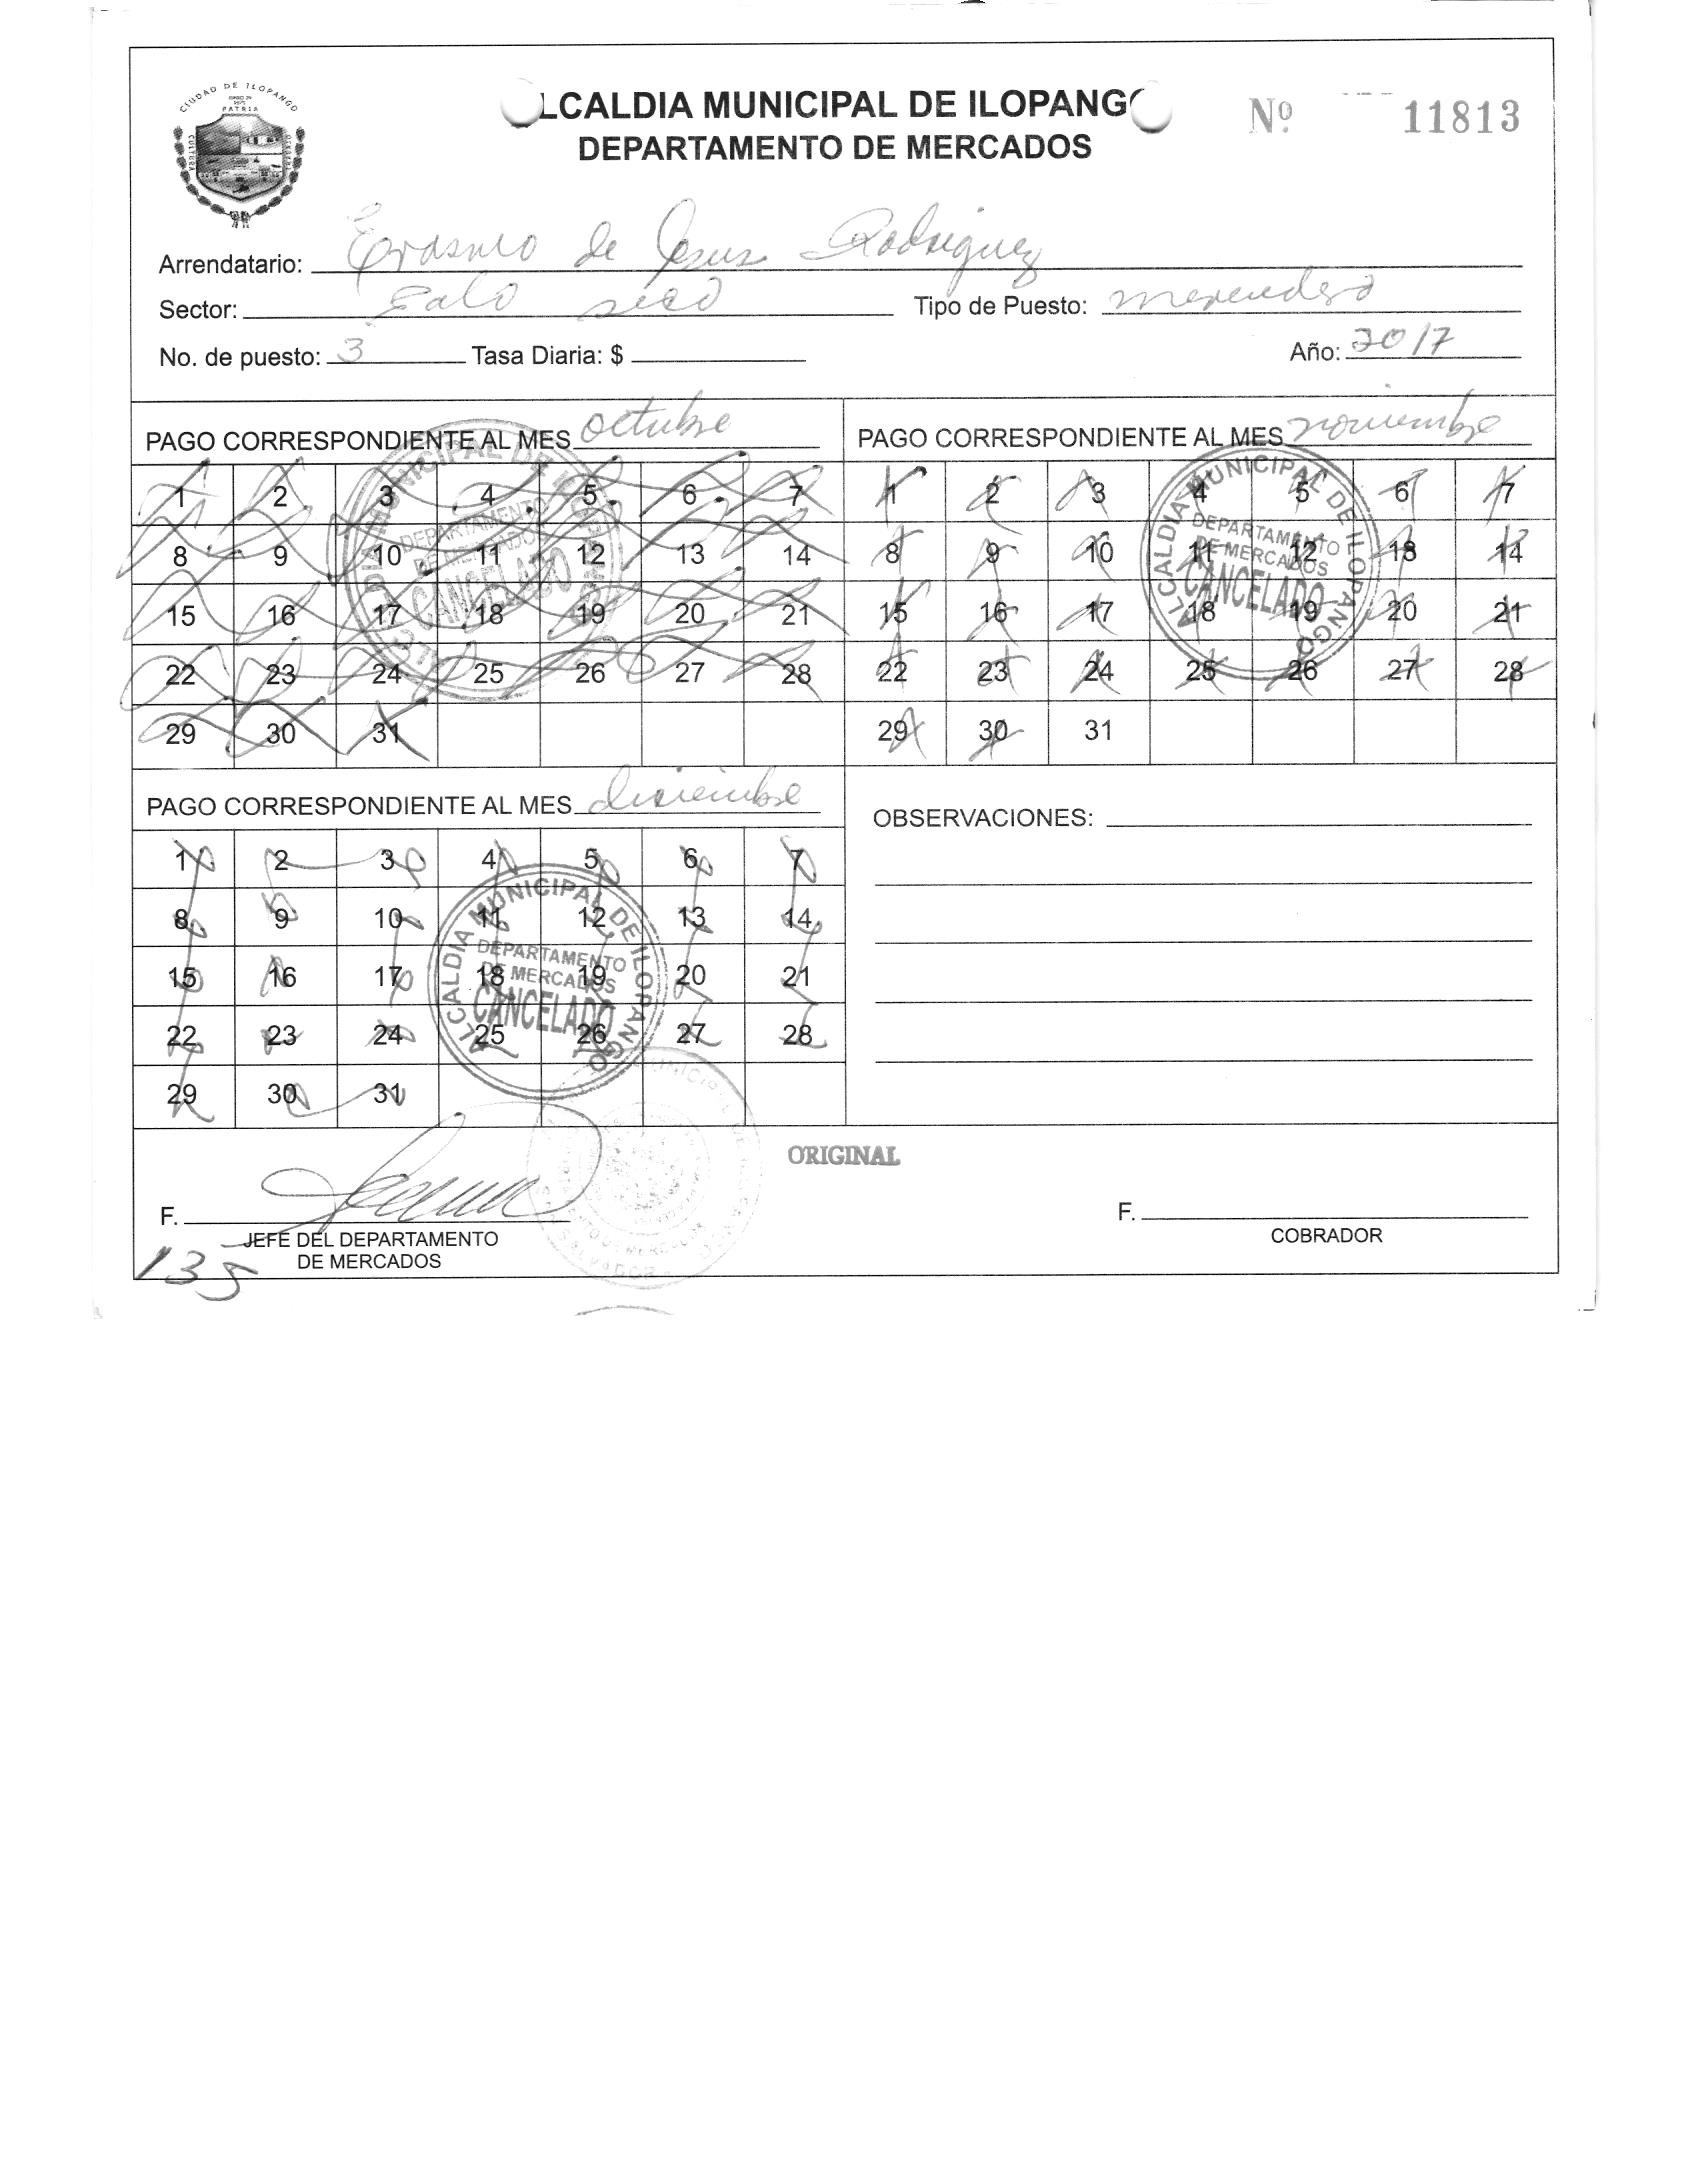 CIUDAD DE ILOPANGO
PATRIA
CULTURA
LCALDIA MUNICIPAL DE ILOPANGO
DEPARTAMENTO DE MERCADOS
Nº 11813
Arrendatario: Erasmo de Jesus Rodriguez
Sector: Palo seco Tipo de Puesto: merendero
No. de puesto: 3 Tasa Diaria: $ Año: 2017
PAGO CORRESPONDIENTE AL MES octubre
1 2 3 4 5 6 7
8 9 10 11 12 13 14
15 16 17 18 19 20 21
22 23 24 25 26 27 28
29 30 31
DEPARTAMENTO
DE MERCADOS
CANCELADO
PAGO CORRESPONDIENTE AL MES noviembre
1 2 3 4 5 6 7
8 9 10 11 12 13 14
15 16 17 18 19 20 21
22 23 24 25 26 27 28
29 30 31
ALCALDIA MUNICIPAL DE ILOPANGO
DEPARTAMENTO
DE MERCADOS
CANCELADO
PAGO CORRESPONDIENTE AL MES diciembre
1 2 3 4 5 6 7
8 9 10 11 12 13 14
15 16 17 18 19 20 21
22 23 24 25 26 27 28
29 30 31
ALCALDIA MUNICIPAL DE ILOPANGO
DEPARTAMENTO
DE MERCADOS
CANCELADO
OBSERVACIONES:
ORIGINAL
F.
JEFE DEL DEPARTAMENTO
DE MERCADOS
135
F.
COBRADOR